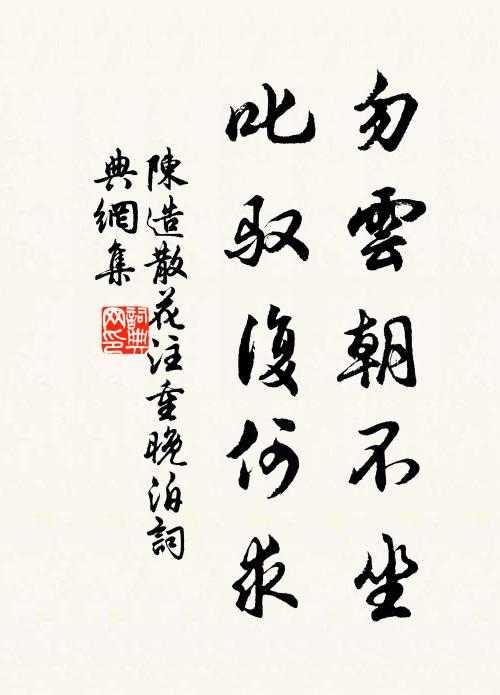 勿雲朝不坐
叱馭復何求
陳造散花注重晚泊詞
典網集
詞典網印